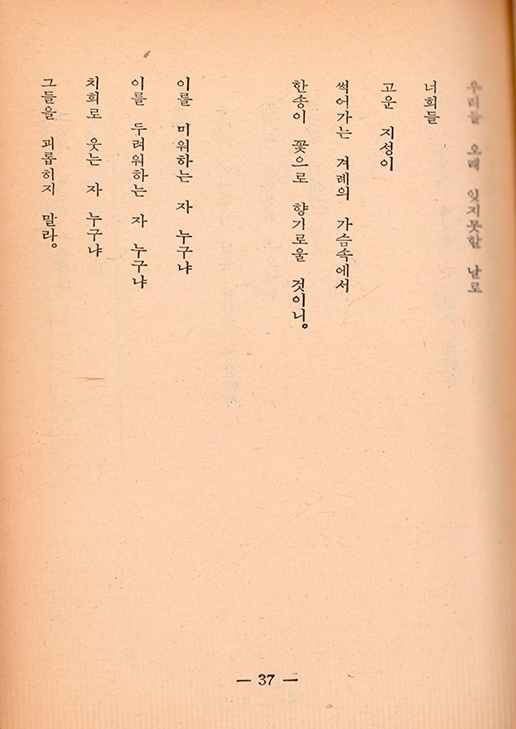 우리들 오래 잊지못할 날로
너희들
고운 지성이
썩어가는 겨레의 가슴속에서
한송이 꽃으로 향기로울 것이니。
이를 미워하는 자 누구냐
이를 두려워하는 자 누구냐
치희로 웃는 자 누구냐
그들을 괴롭히지 말라。
— 37 —